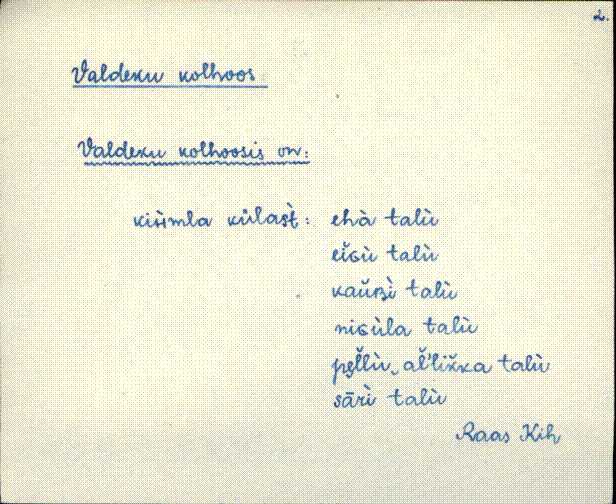 2.
Valdeku kolhoos
Valdeku kolhoosis on:
kiìimla külaśt̀: ehà talù
eĭɢù talù
kaŭʙì talù
niɢùla talù
pęl̆lù, al̆'liκκa talù
sārì talù
Raas Kih